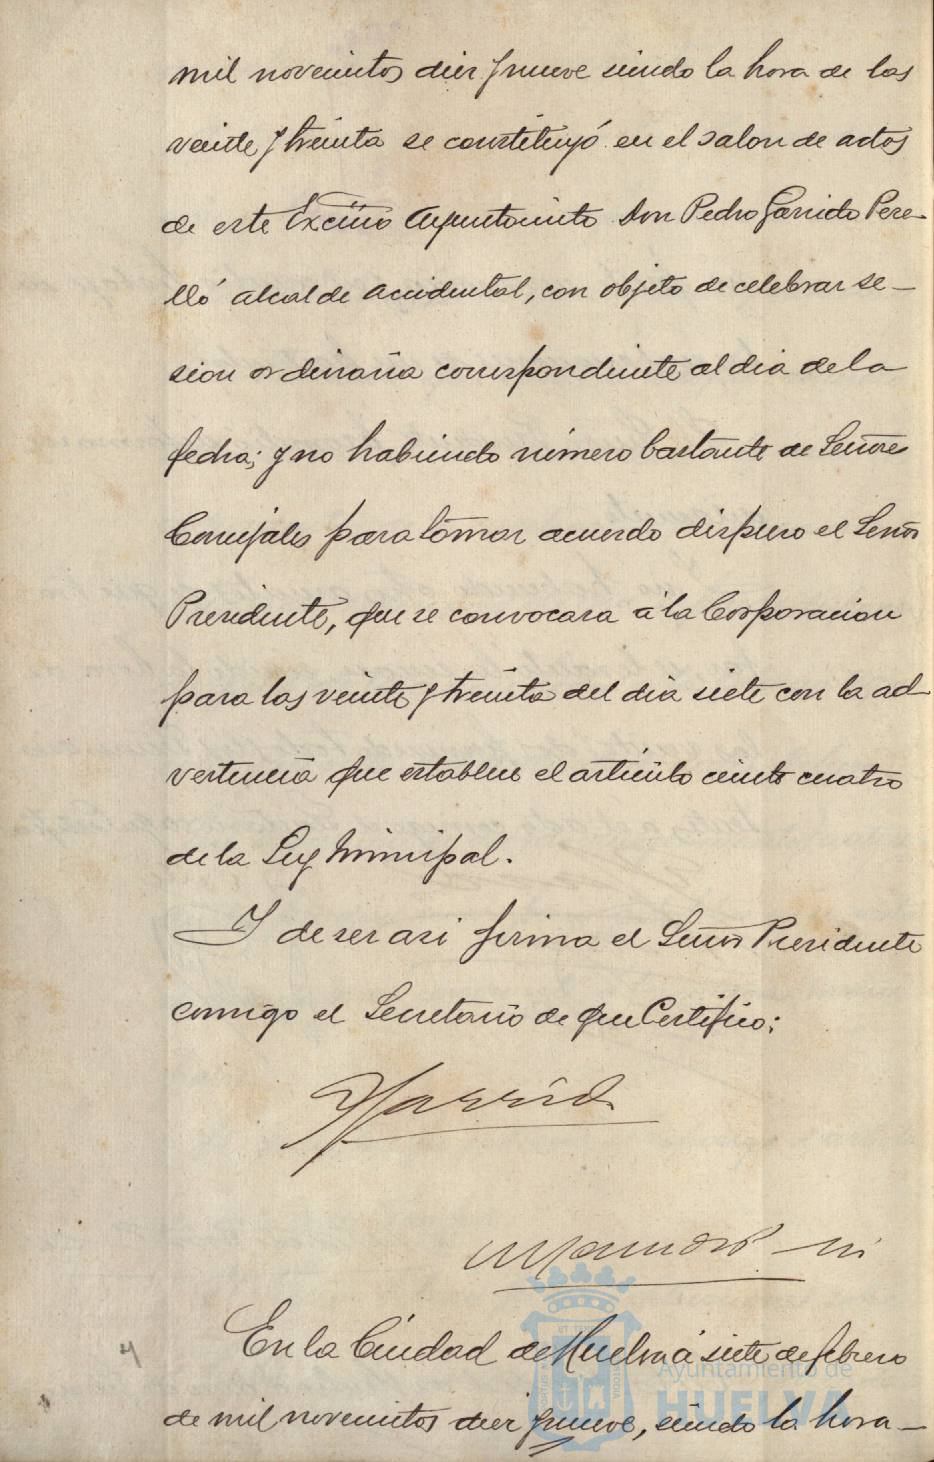 mil novecientos diez y nueve siendo la hora de las
veinte y treinta se constituyó en el salon de actos
de este Excmo Ayuntamiento Don Pedro Garrido Pere-
lló alcalde accidental, con objeto de celebrar se-
sion ordinaria correspondiente al dia de la
fecha; y no habiendo número bastante de Señores
Concejales para tomar acuerdo dispuso el Señor
Presidente, que se convocara á la Corporacion
para las veinte y treinta del dia siete con la ad-
vertencia que establece el articulo ciento cuatro
de la Ley Municipal.
Y de ser asi firma el Señor Presidente
conmigo el Secretario de que Certifico;
Garrido
En la Ciudad de Huelva á siete de febrero
de mil novecientos diez y nueve, siendo la hora-
Ayuntamiento de
HUELVA